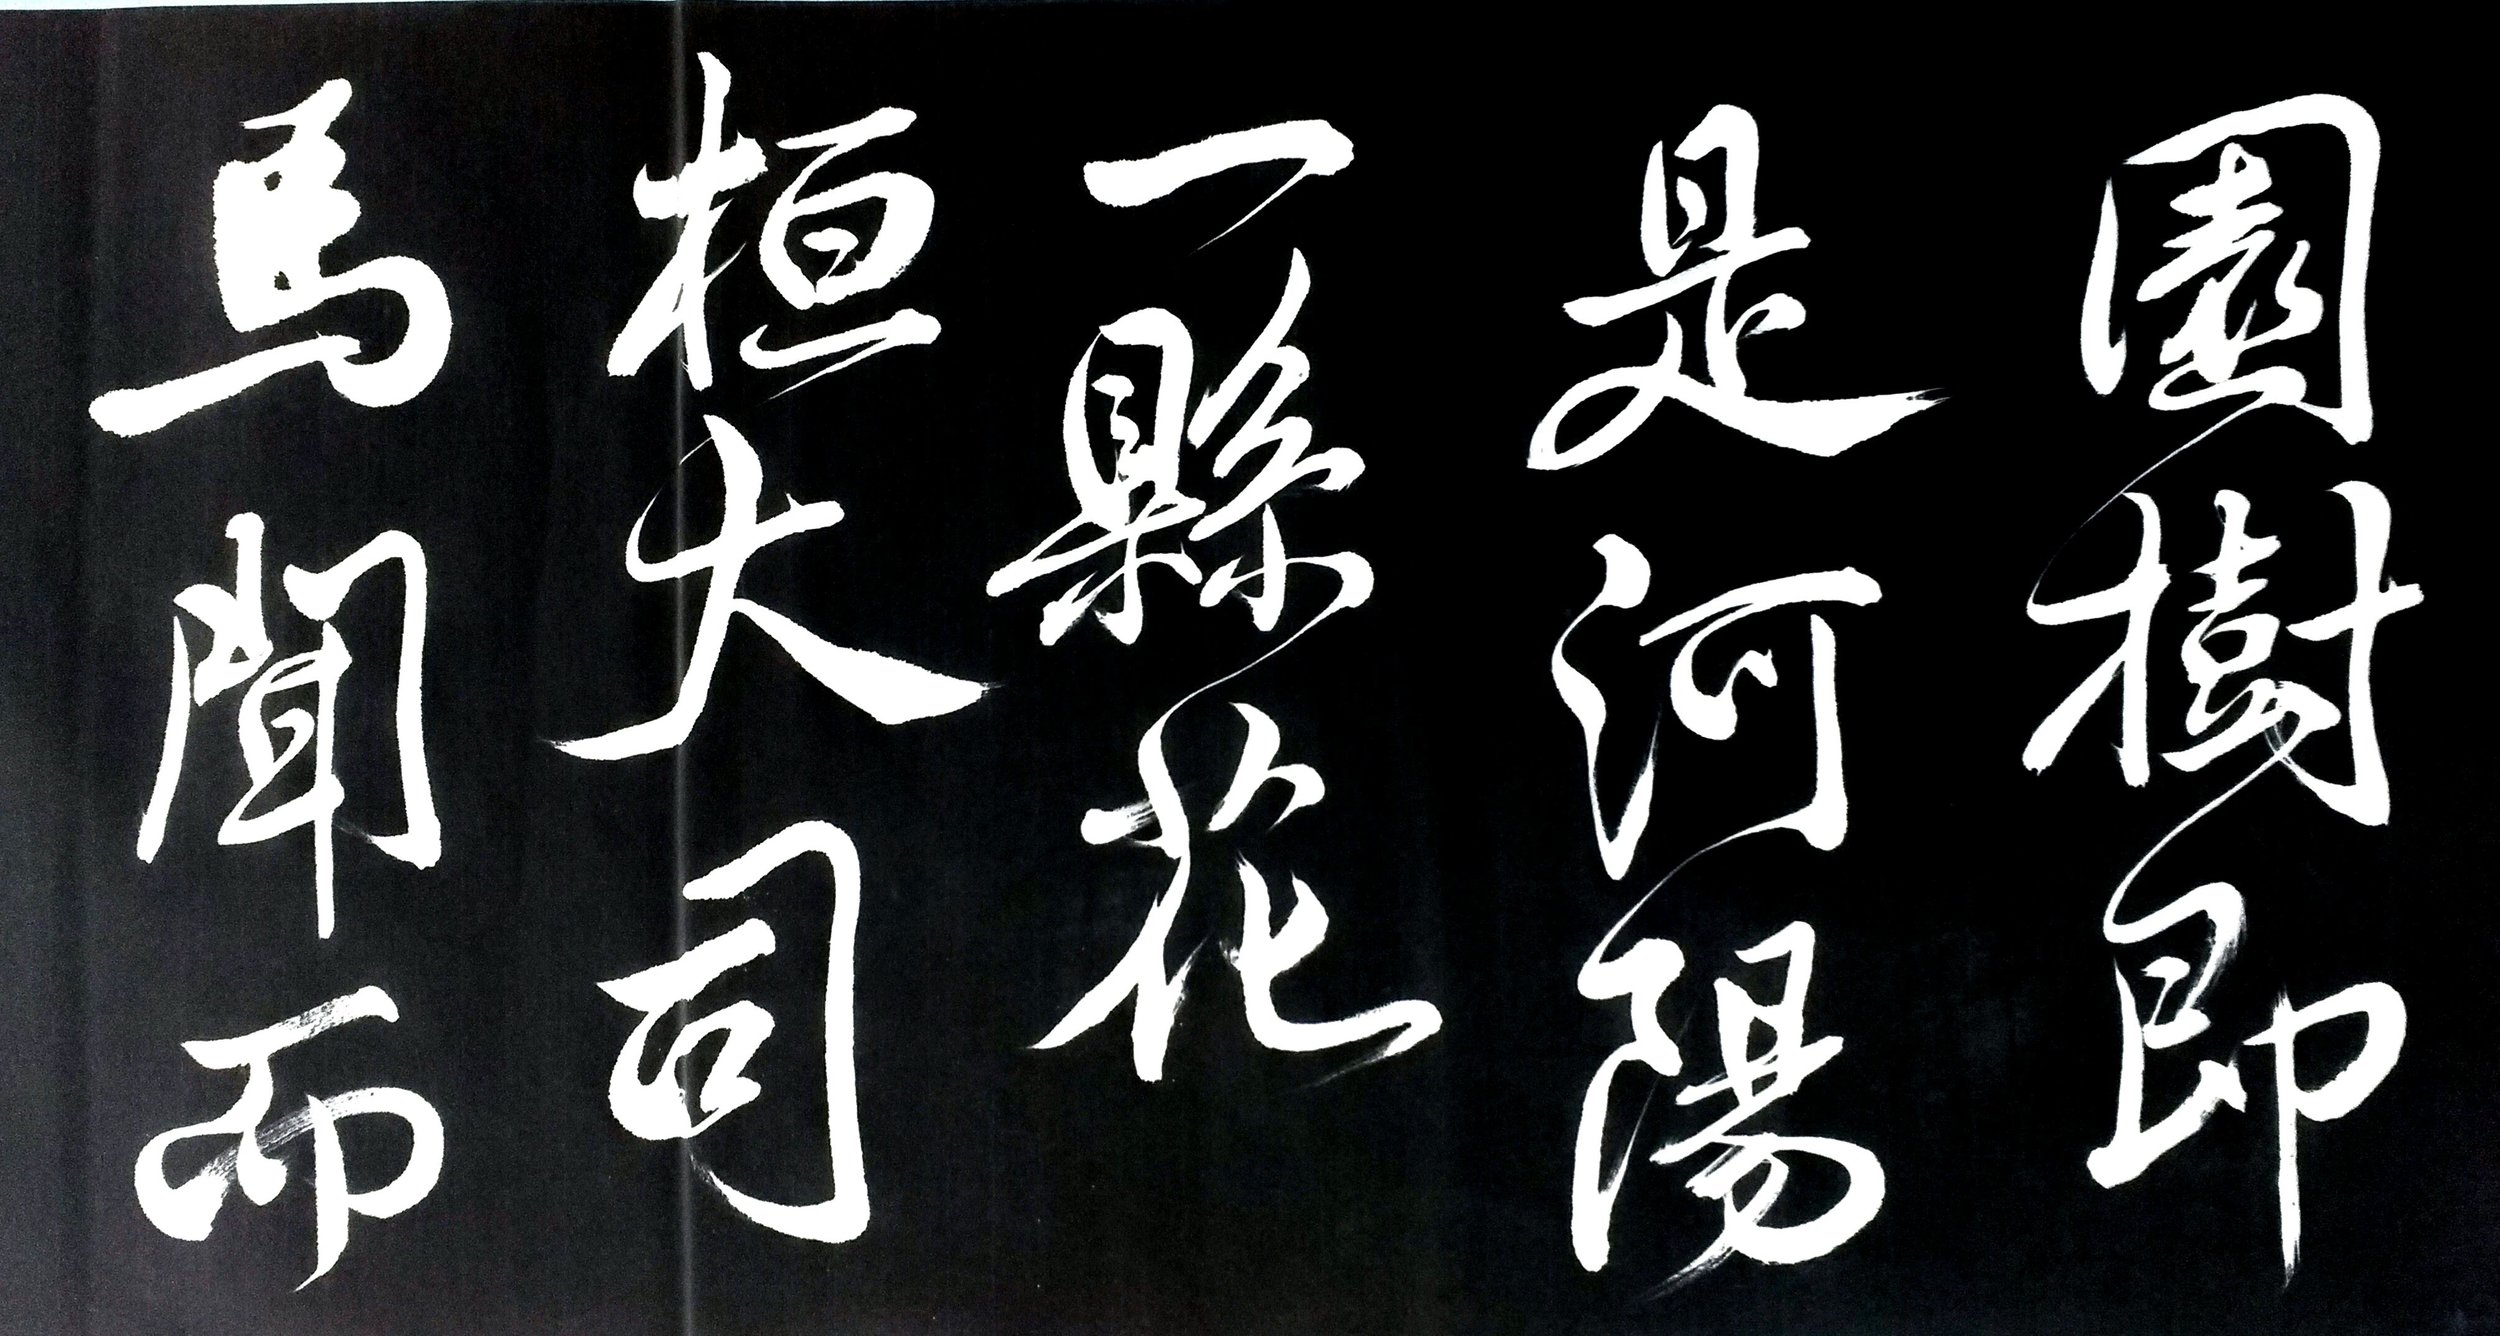 園樹即
是河陽
一縣花
桓大司
馬聞而